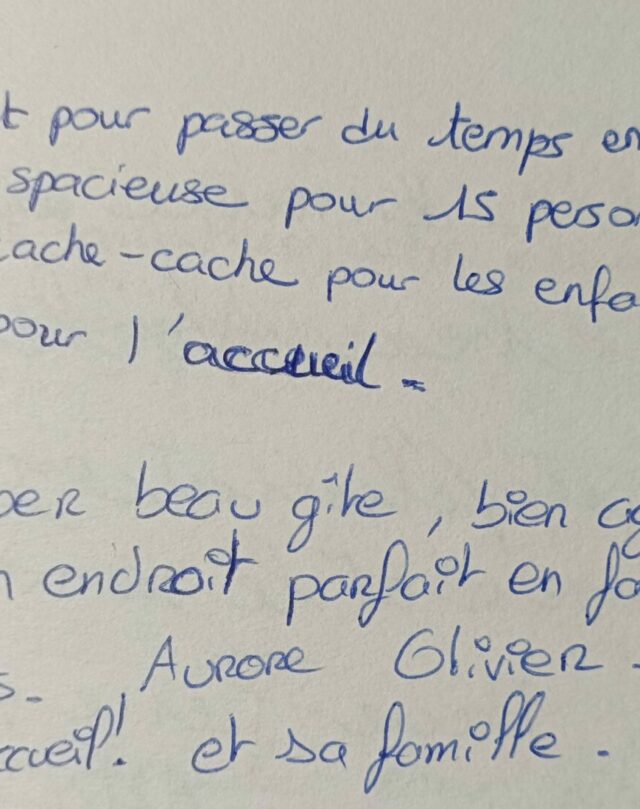 t pour passer du temps en
spacieuse pour 15 person
cache-cache pour les enfa
pour l'accueil.
per beau gîte, bien ag
n endroit parfait en fa
s. Aurore Olivier -
ccueil! et sa famille.